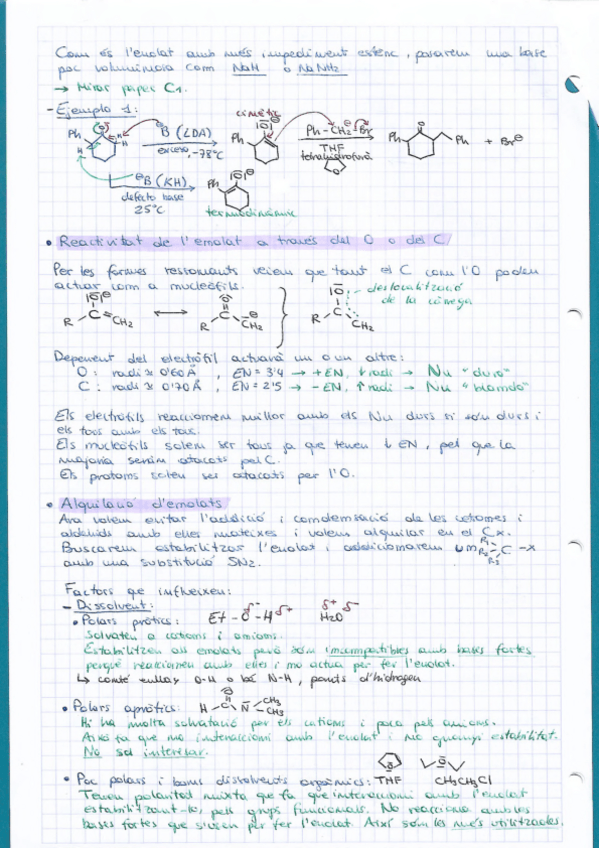 Com és l'enolat amb més impediment estèric, posarem una base
poc voluminosa com NaH o NaNH2
→ Mirar paper C1.
- Ejemplo 1:
cinètic
Ph
H
H
⊖B (LDA)
excess, -78°C
Ph
Ph-CH2-Br
THF
tetrahidrofurà
Ph
+ Br⊖
⊖B (KH)
defecto base
25°C
Ph
termodinàmic
• Reactivitat de l'enolat a través del O o del C
Per les formes ressonants veiem que tant el C com l'O poden
actuar com a nucleòfils.
deslocalització
de la càrrega
R C CH2 ↔ R C CH2
R C CH2
Depenent del electròfil actuarà un o un altre:
O: radi ≈ 0'60Å, EN = 3'4 → +EN, ↓radi → Nu "duro"
C: radi ≈ 0'70Å, EN = 2'5 → -EN, ↑radi → Nu "blando"
Els electròfils reaccionen millor amb els Nu durs si són durs i
els tous amb els tous.
Els nucleòfils solem ser tous ja que tenen ↓EN, pel que la
majoria seran atacats pel C.
Els protons solen ser atacats per l'O.
• Alquilació d'enolats
Ara volem evitar l'addició i condensació de les cetones i
aldehids amb elles mateixes i volem alquilar en el Cα.
Buscarem estabilitzar l'enolat i addicionarem un R1 R2 R3 C-X
amb una substitució SN2.
Factors que influeixen:
- Dissolvent:
• Polars pròtics: Et-O-H δ- δ+ H2O δ+ δ-
Solvaten a cations i anions.
Estabilitzen als enolats però són incompatibles amb bases fortes
perquè reaccionen amb elles i no actua per fer l'enolat.
↳ conté enllaç O-H o bé N-H, ponts d'hidrogen
• Polars apròtics: H C N CH3 CH3
Hi ha molta solvatació per els cations i poca pels anions.
Això fa que no interaccioni amb l'enolat i no guanyi estabilitat.
No sol interesar.
• Poc polars i bons dissolvents orgànics: THF CH3CH2Cl
Tenen polaritat mixta que fa que interaccioni amb l'enolat
estabilitzant-lo, pels grups funcionals. No reacciona amb les
bases fortes que s'usen per fer l'enolat. Així són les més utilitzades.